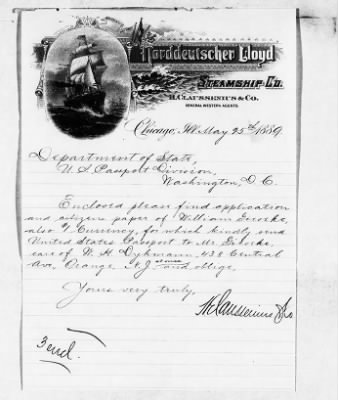 Norddeutscher Lloyd
STEAMSHIP CO.
H. CLAUSSENIUS & CO.
GENERAL WESTERN AGENTS.
Chicago, Ill. May 25th 1889.
Department of State,
U.S. Passport Division,
Washington, D C.
Enclosed please find application
and citizens paper of William
also $1 Currency, for which kindly send
United States Passport to Mr.
care of W. H. Dykmann, 438 Central
Ave, Orange, N.J. at once and oblige.
Yours very truly,
H. Claussenius & Co
3 encl.